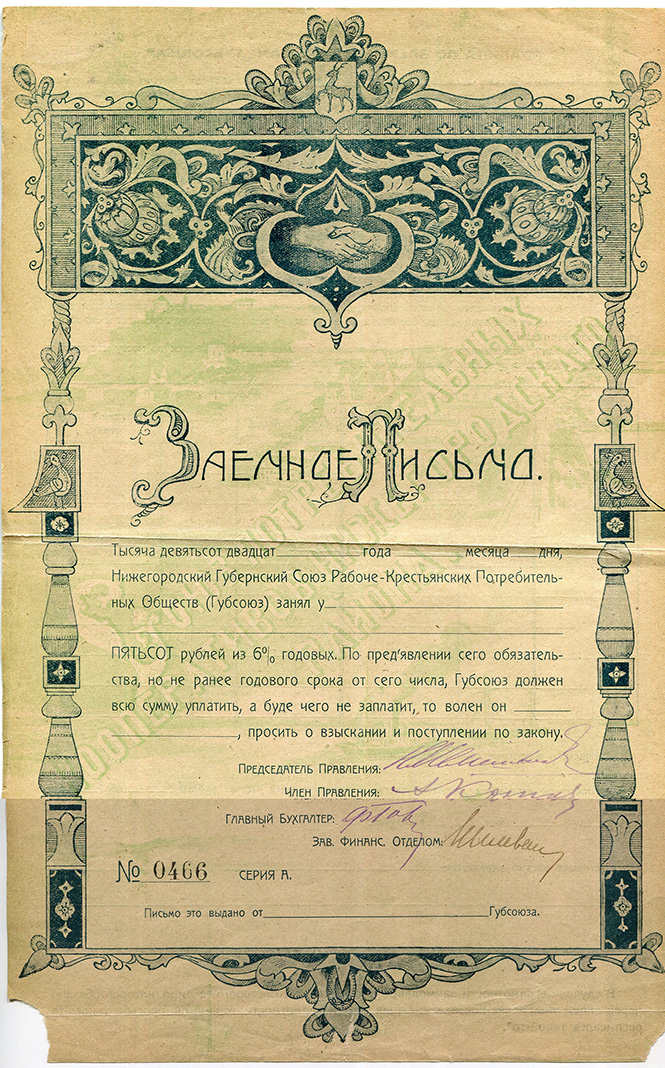 Заемное Письмо.
Тысяча девятьсот двадцат______ года ______ месяца ___ дня,
Нижегородский Губернский Союз Рабоче-Крестьянских Потребитель-
ных Обществ (Губсоюз) занял у______
ПЯТЬСОТ рублей из 6% годовых. По пред'явлении сего обязатель-
ства, но не ранее годового срока от сего числа, Губсоюз должен
всю сумму уплатить, а буде чего не заплатит, то волен он ______
______, просить о взыскании и поступлении по закону.
Председатель Правления:
Член Правления:
Главный Бухгалтер:
Зав. Финанс. Отделом:
№ 0466 СЕРИЯ А.
Письмо это выдано от______Губсоюза.